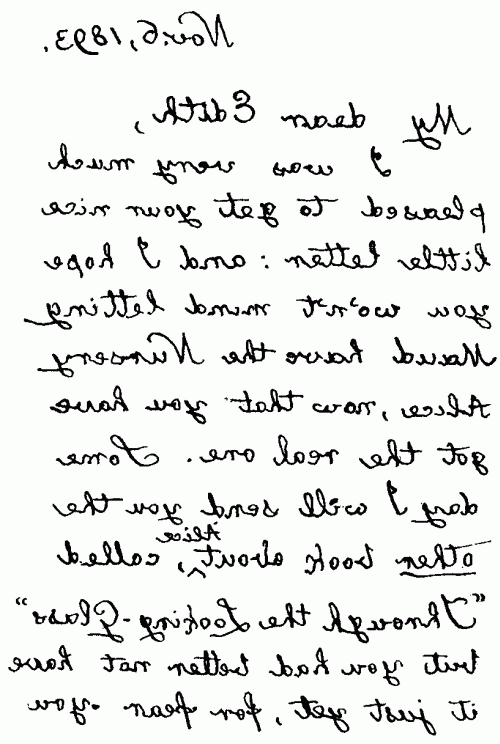 Nov. 6, 1893.
My dear Edith,
I was very much
pleased to get your nice
little letter: and I hope
you wo'n't mind letting
Maud have the Nursery
Alice, now that you have
got the real one. Some
day I will send you the
other book about Alice, called
"Through the Looking-Glass"
but you had better not have
it just yet, for fear you